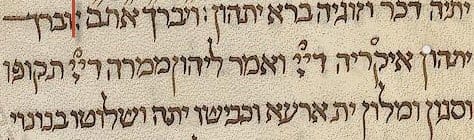 יתיה דכר וזוגיה ברא יתהון : ויברך אתם וברך
יתהון איקריה דייי ואמר ליהון ממרה דייי תקופו
וסגון ומלון ית ארעא וכבישו יתה ושלוטו בנוניי